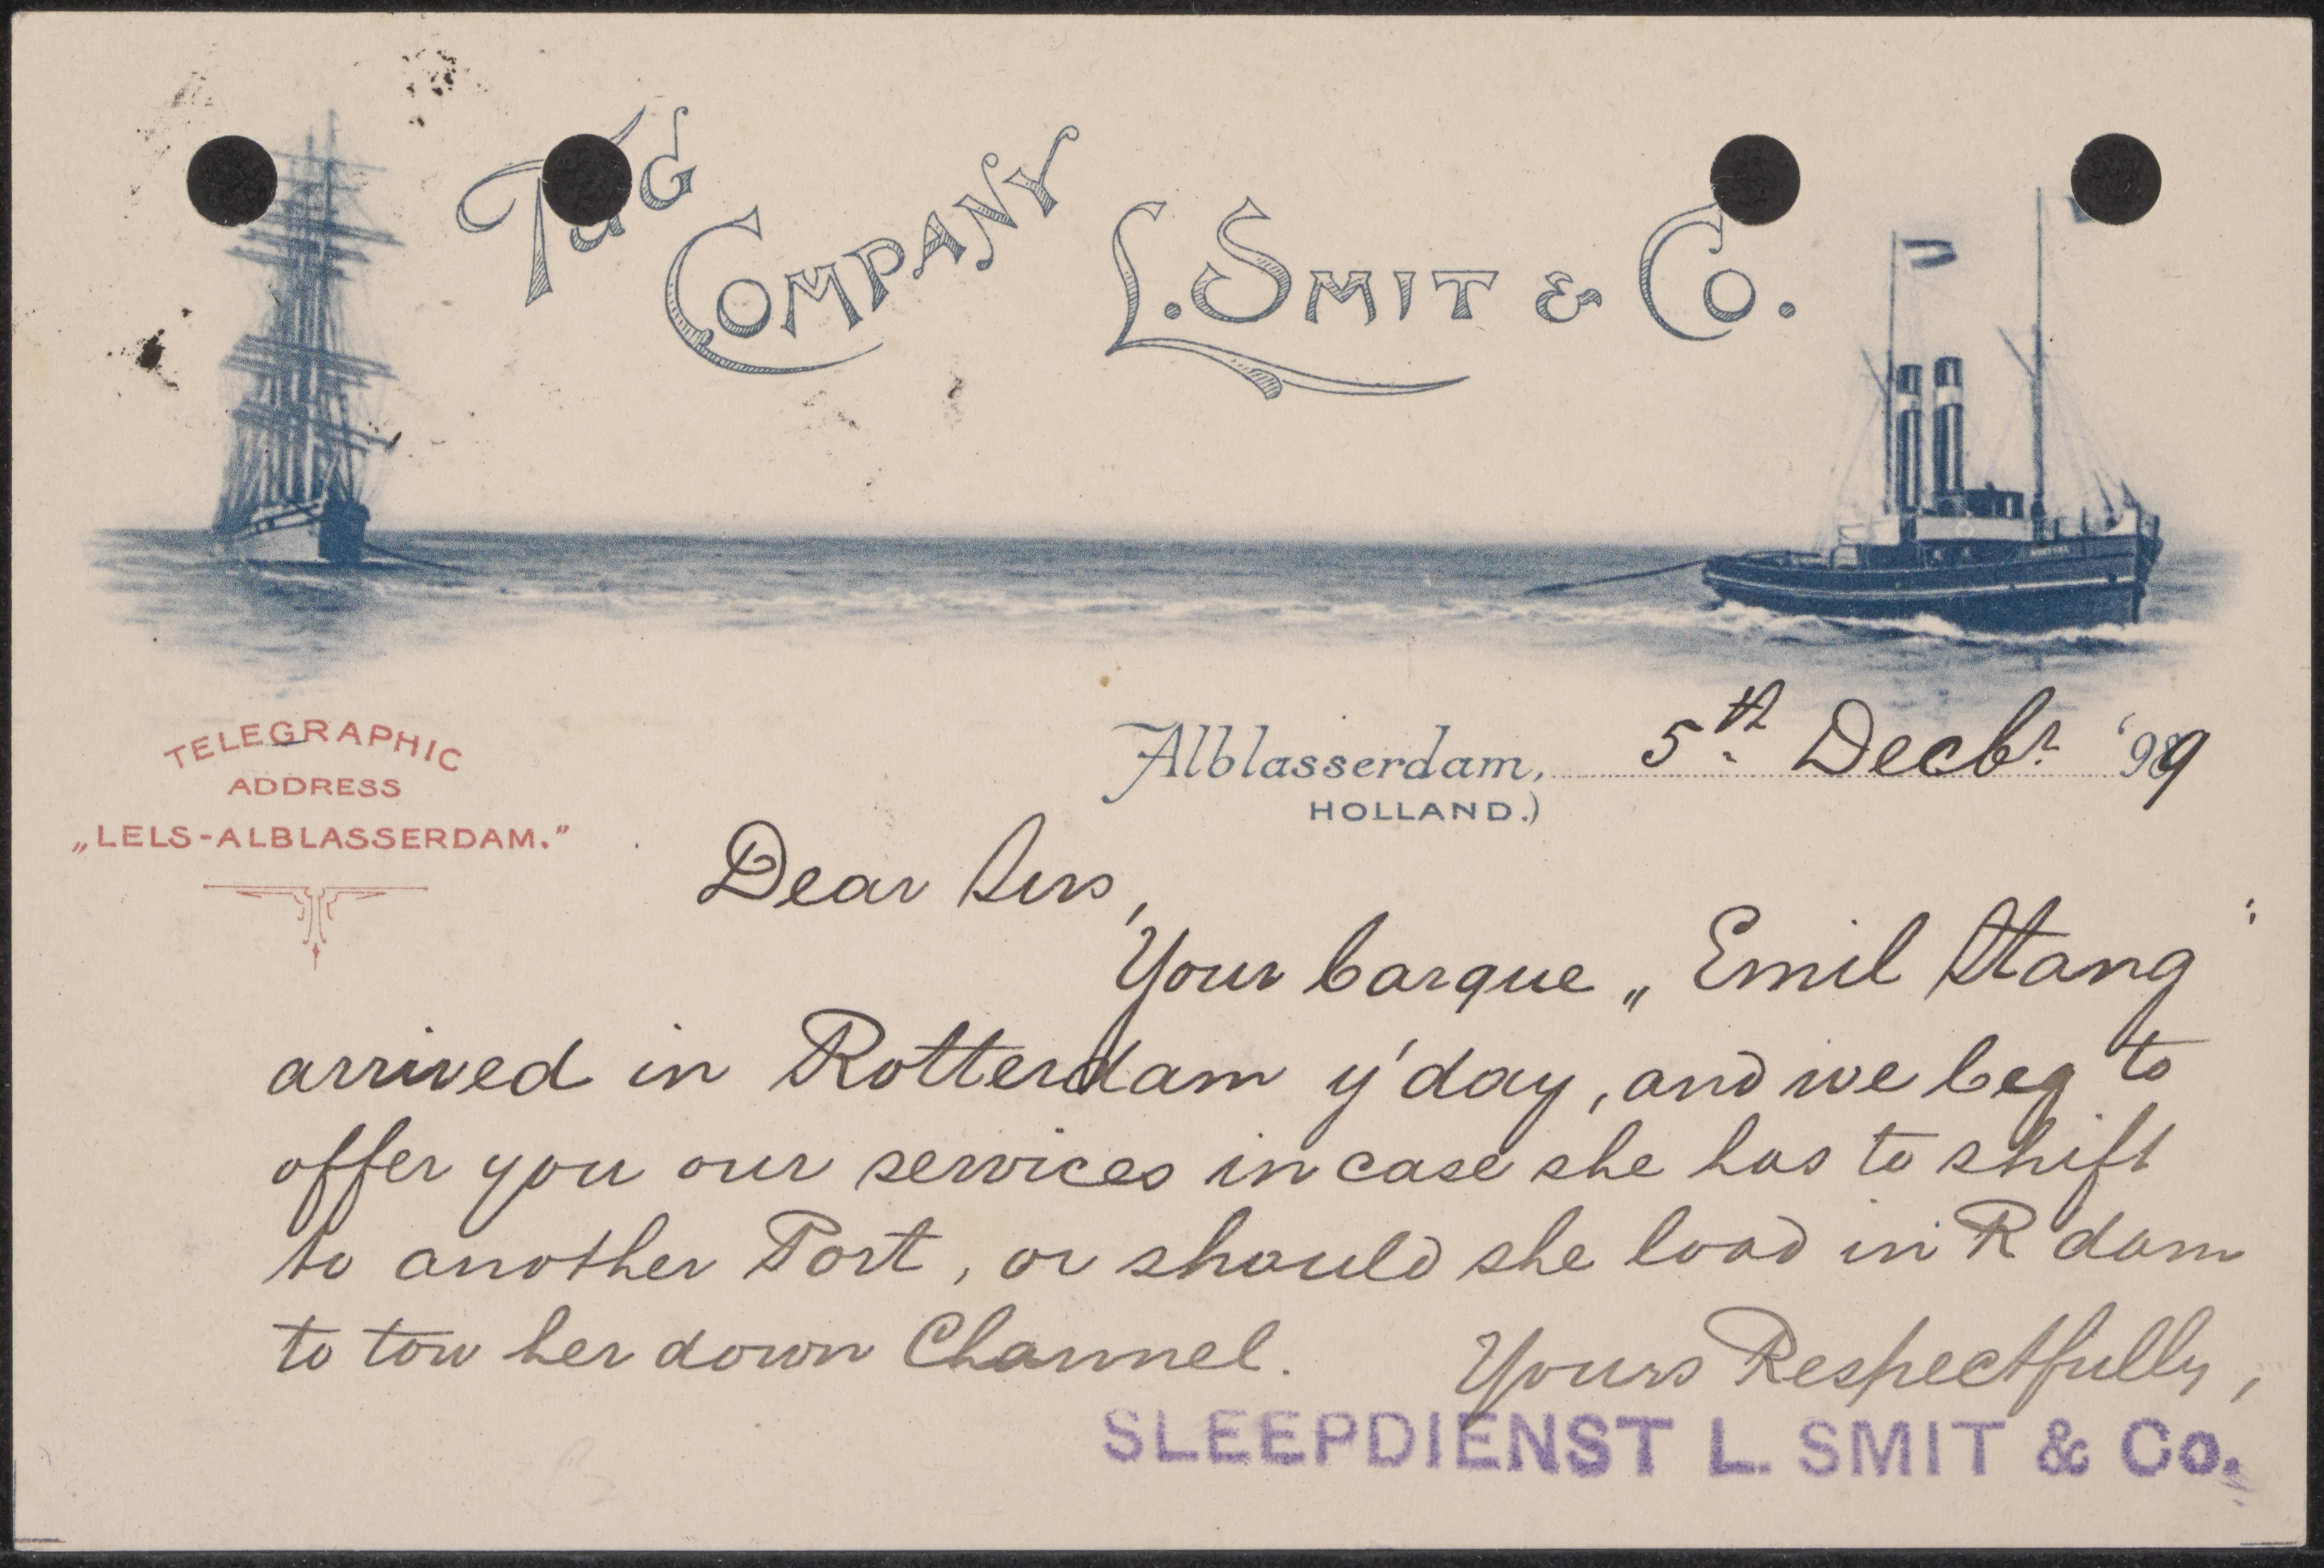 Tug
Company L. Smit & Co.
TELEGRAPHIC
ADDRESS
„LELS-ALBLASSERDAM.”
Alblasserdam, 5th Decbr '99
HOLLAND.)
Dear Sirs,
Your barque „Emil Stang"
arrived in Rotterdam y'day, and we beg to
offer you our services in case she has to shift
to another Port, or should she load in R'dam
to tow her down Channel. Yours Respectfully,
SLEEPDIENST L. SMIT & Co.